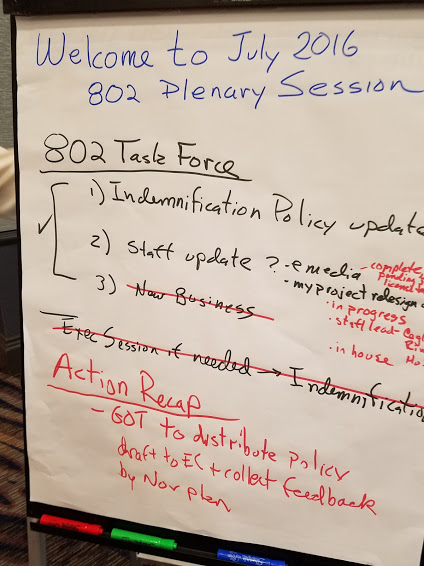 Welcome to July 2016
802 Plenary Session
802 Task Force
1) Indemnification Policy update
2) Staff update ? - emedia - complete,
pending
- my project redesign
· in progress
· staff lead -
· in house
3) New Business
Exec Session if needed → Indemnification
Action Recap
- GOT to distribute policy
draft to EC + collect feedback
by Nov plen